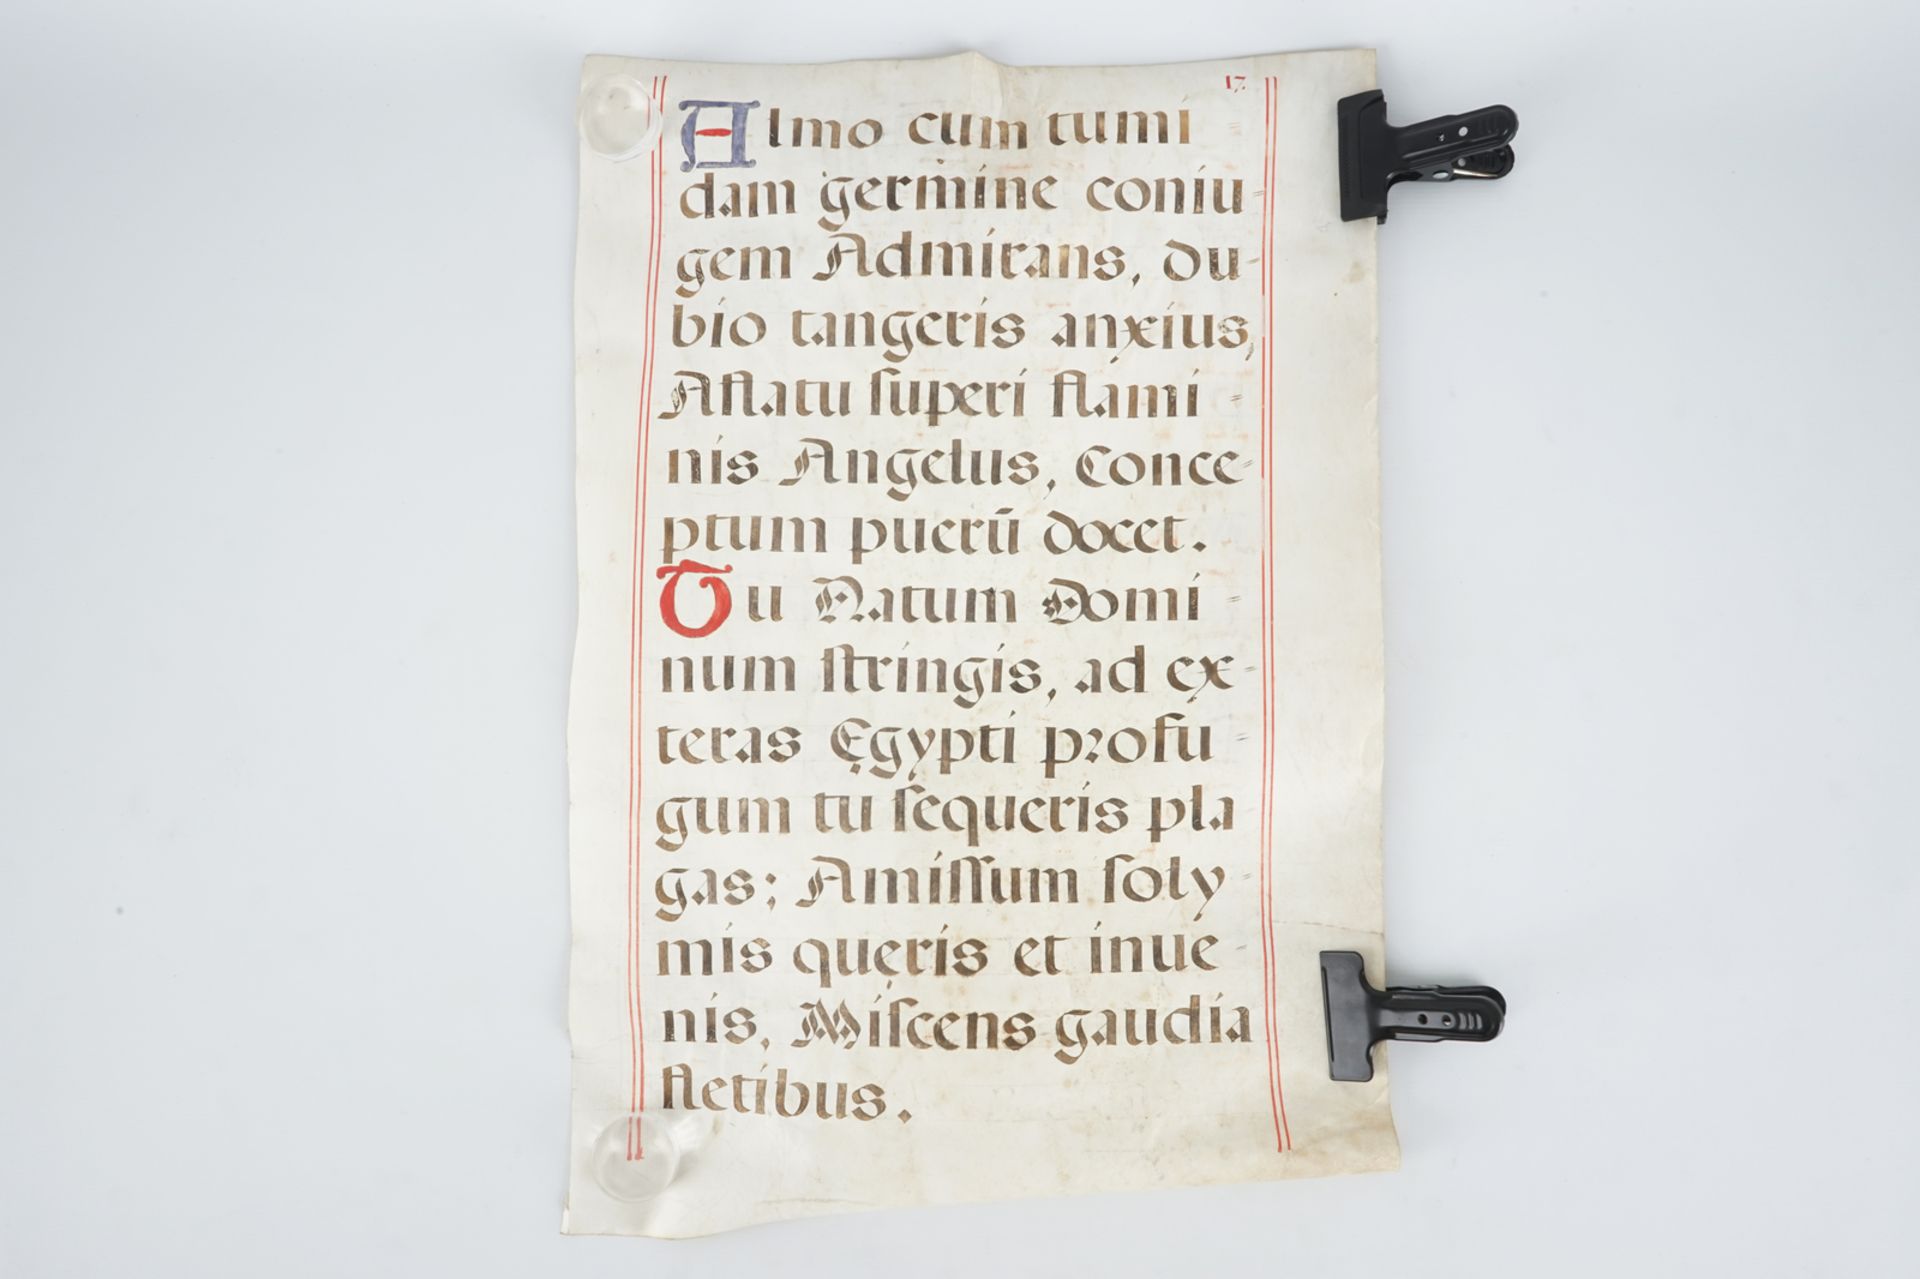 17.
Almo cum tumi
dam germine coniu=
gem Admirans, du=
bio tangeris anxius,
Aflatu ſuperi flami=
nis Angelus, Conce=
ptum puerū docet.
Tu Natum Domi=
num ſtringis, ad ex=
teras Ęgypti profu=
gum tu ſequeris pla
gas; Amiſſum ſoly=
mis quęris et inue=
nis, Miſcens gaudia
fletibus.